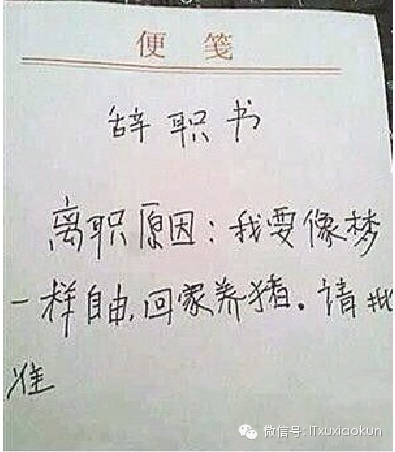 便笺
辞职书
离职原因：我要像梦
一样自由，回家养猪。请批
准
微信号: ITxuxiaokun